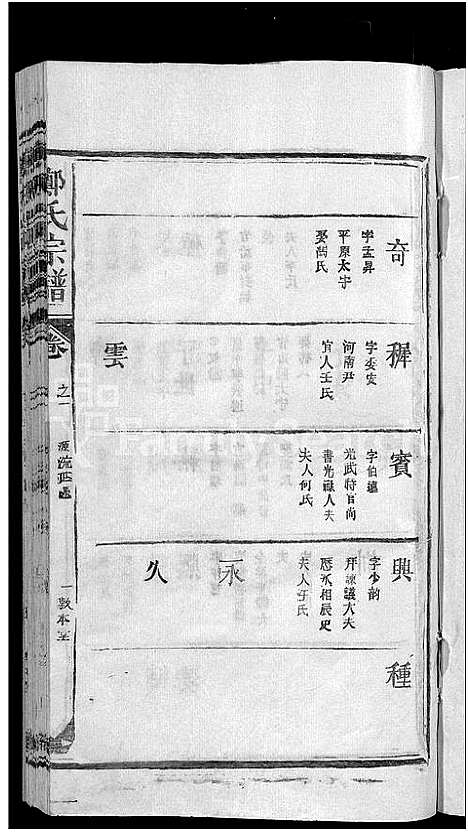 奇
字孟昇
平原太守
娶萬氏
穉
字委安
河南尹
宜人王氏
雲
賓
字伯蘊
光武特官尚
書光祿大夫
夫人何氏
興
字少韵
拜諫議大夫
夫人王氏
永
久
種
鄭氏宗譜
卷
之一
源流
一敦本堂